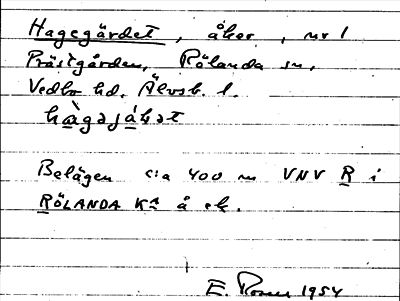 Hagegärdet, åker, nr 1
Prästgården, Rölanda sn,
Vedbo hd. Älvsb. l.
Belägen c:a 400 m VNV R i
RÖLANDA Ka å ek.
E. 1954